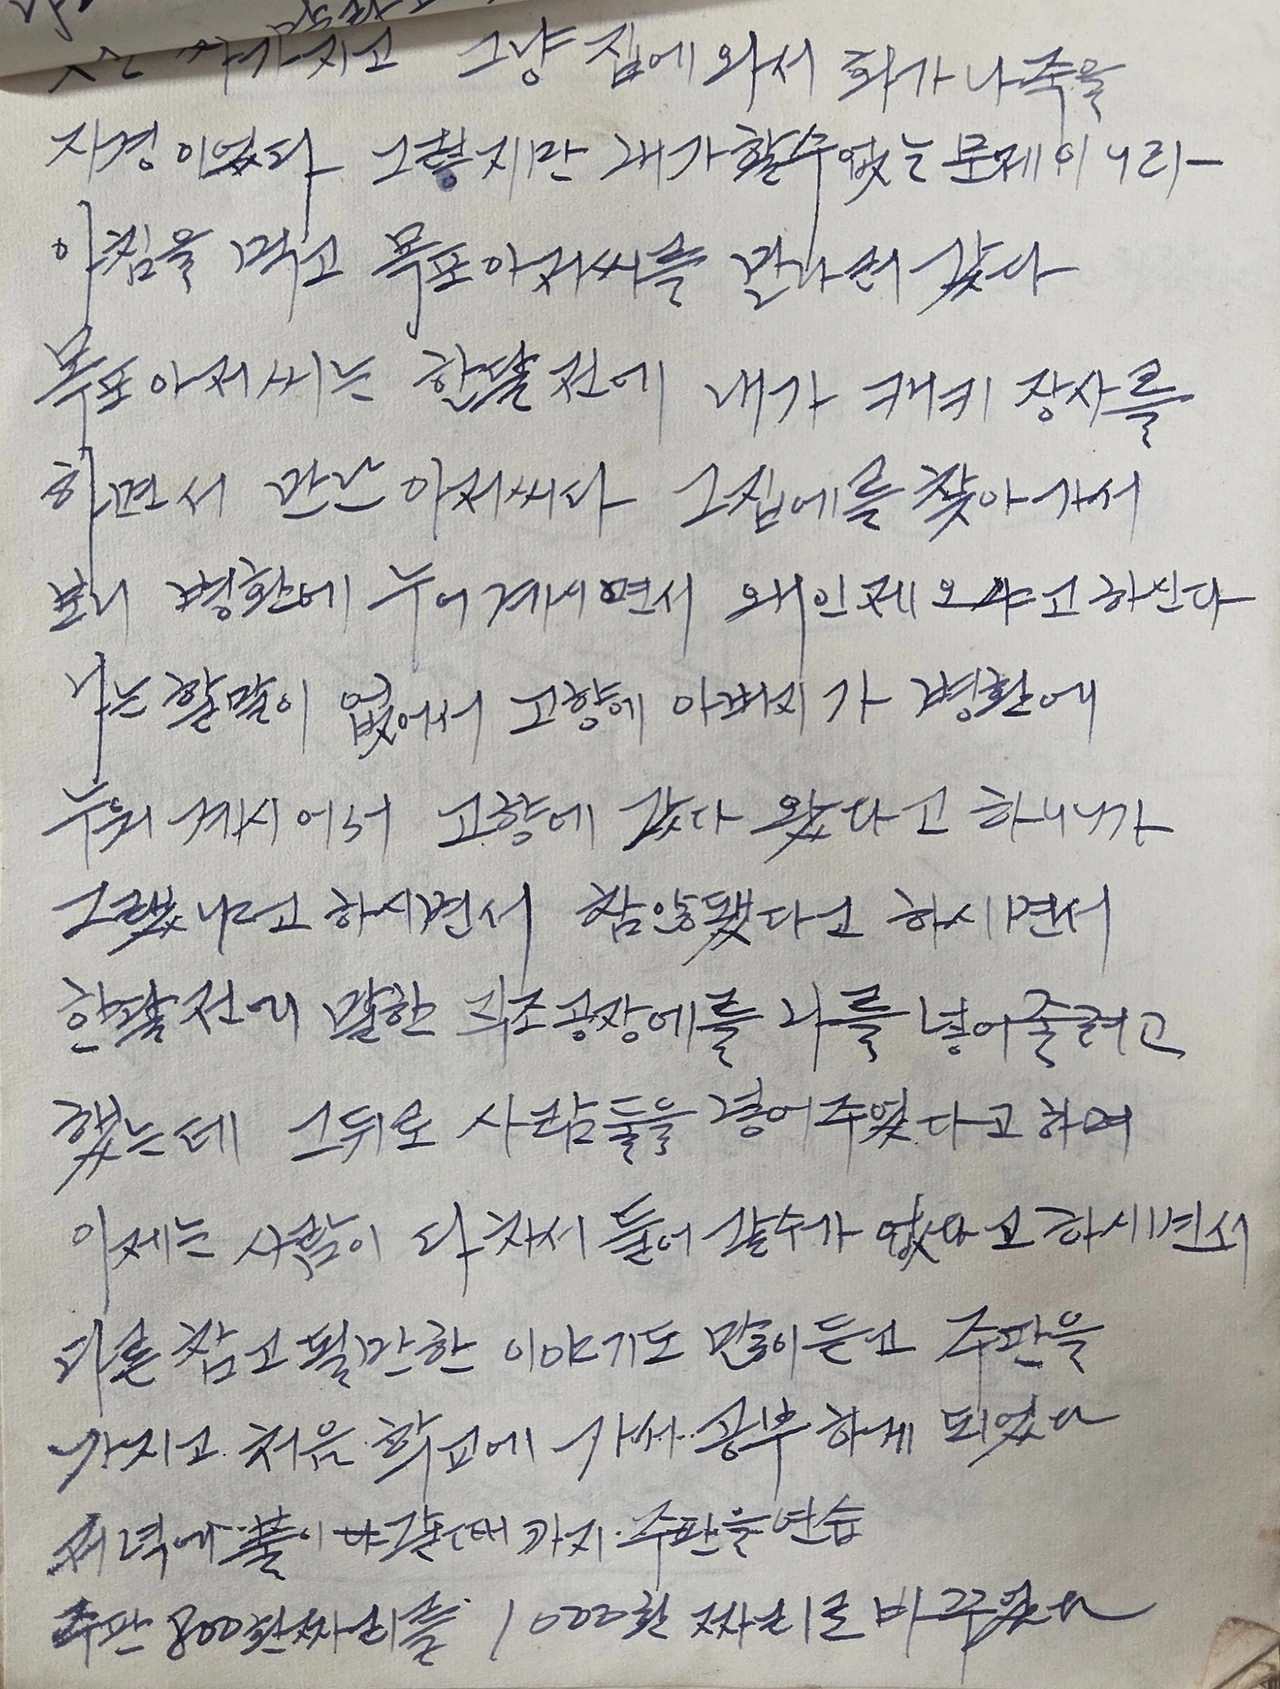 가지고 그냥 집에 와서 화가 나 죽을
지경이였다 그렇지만 내가 할수 없는 문제이니라
아침을 먹고 목포아저씨를 만나러 갔다
목포아저씨는 한달전에 내가 캐키 장사를
하면서 만난 아저씨다 그집에를 찾아가서
보니 병환에 누어계시면서 왜 인제 오냐고 하신다
나는 할말이 없어서 고향에 아버지가 병환에
누워 계시어서 고향에 갔다 왔다고 하니가
그랬냐고 하시면서 참 안됐다고 하시면서
한달전에 말한 직조공장에를 나를 넣어줄려고
했는데 그뒤로 사람둘을 넣어주었다고하며
이제는 사람이 다 차서 들어 갈수가 없다고 하시면서
다른 참고 될만한 이야기도 많이 듣고 주판을
가지고 처음 학교에 가서 공부하게 되었다
저녁에 불이 나갈때까지 주판을 연습
주판 800환짜리를 1000환 짜리로 바꾸었다